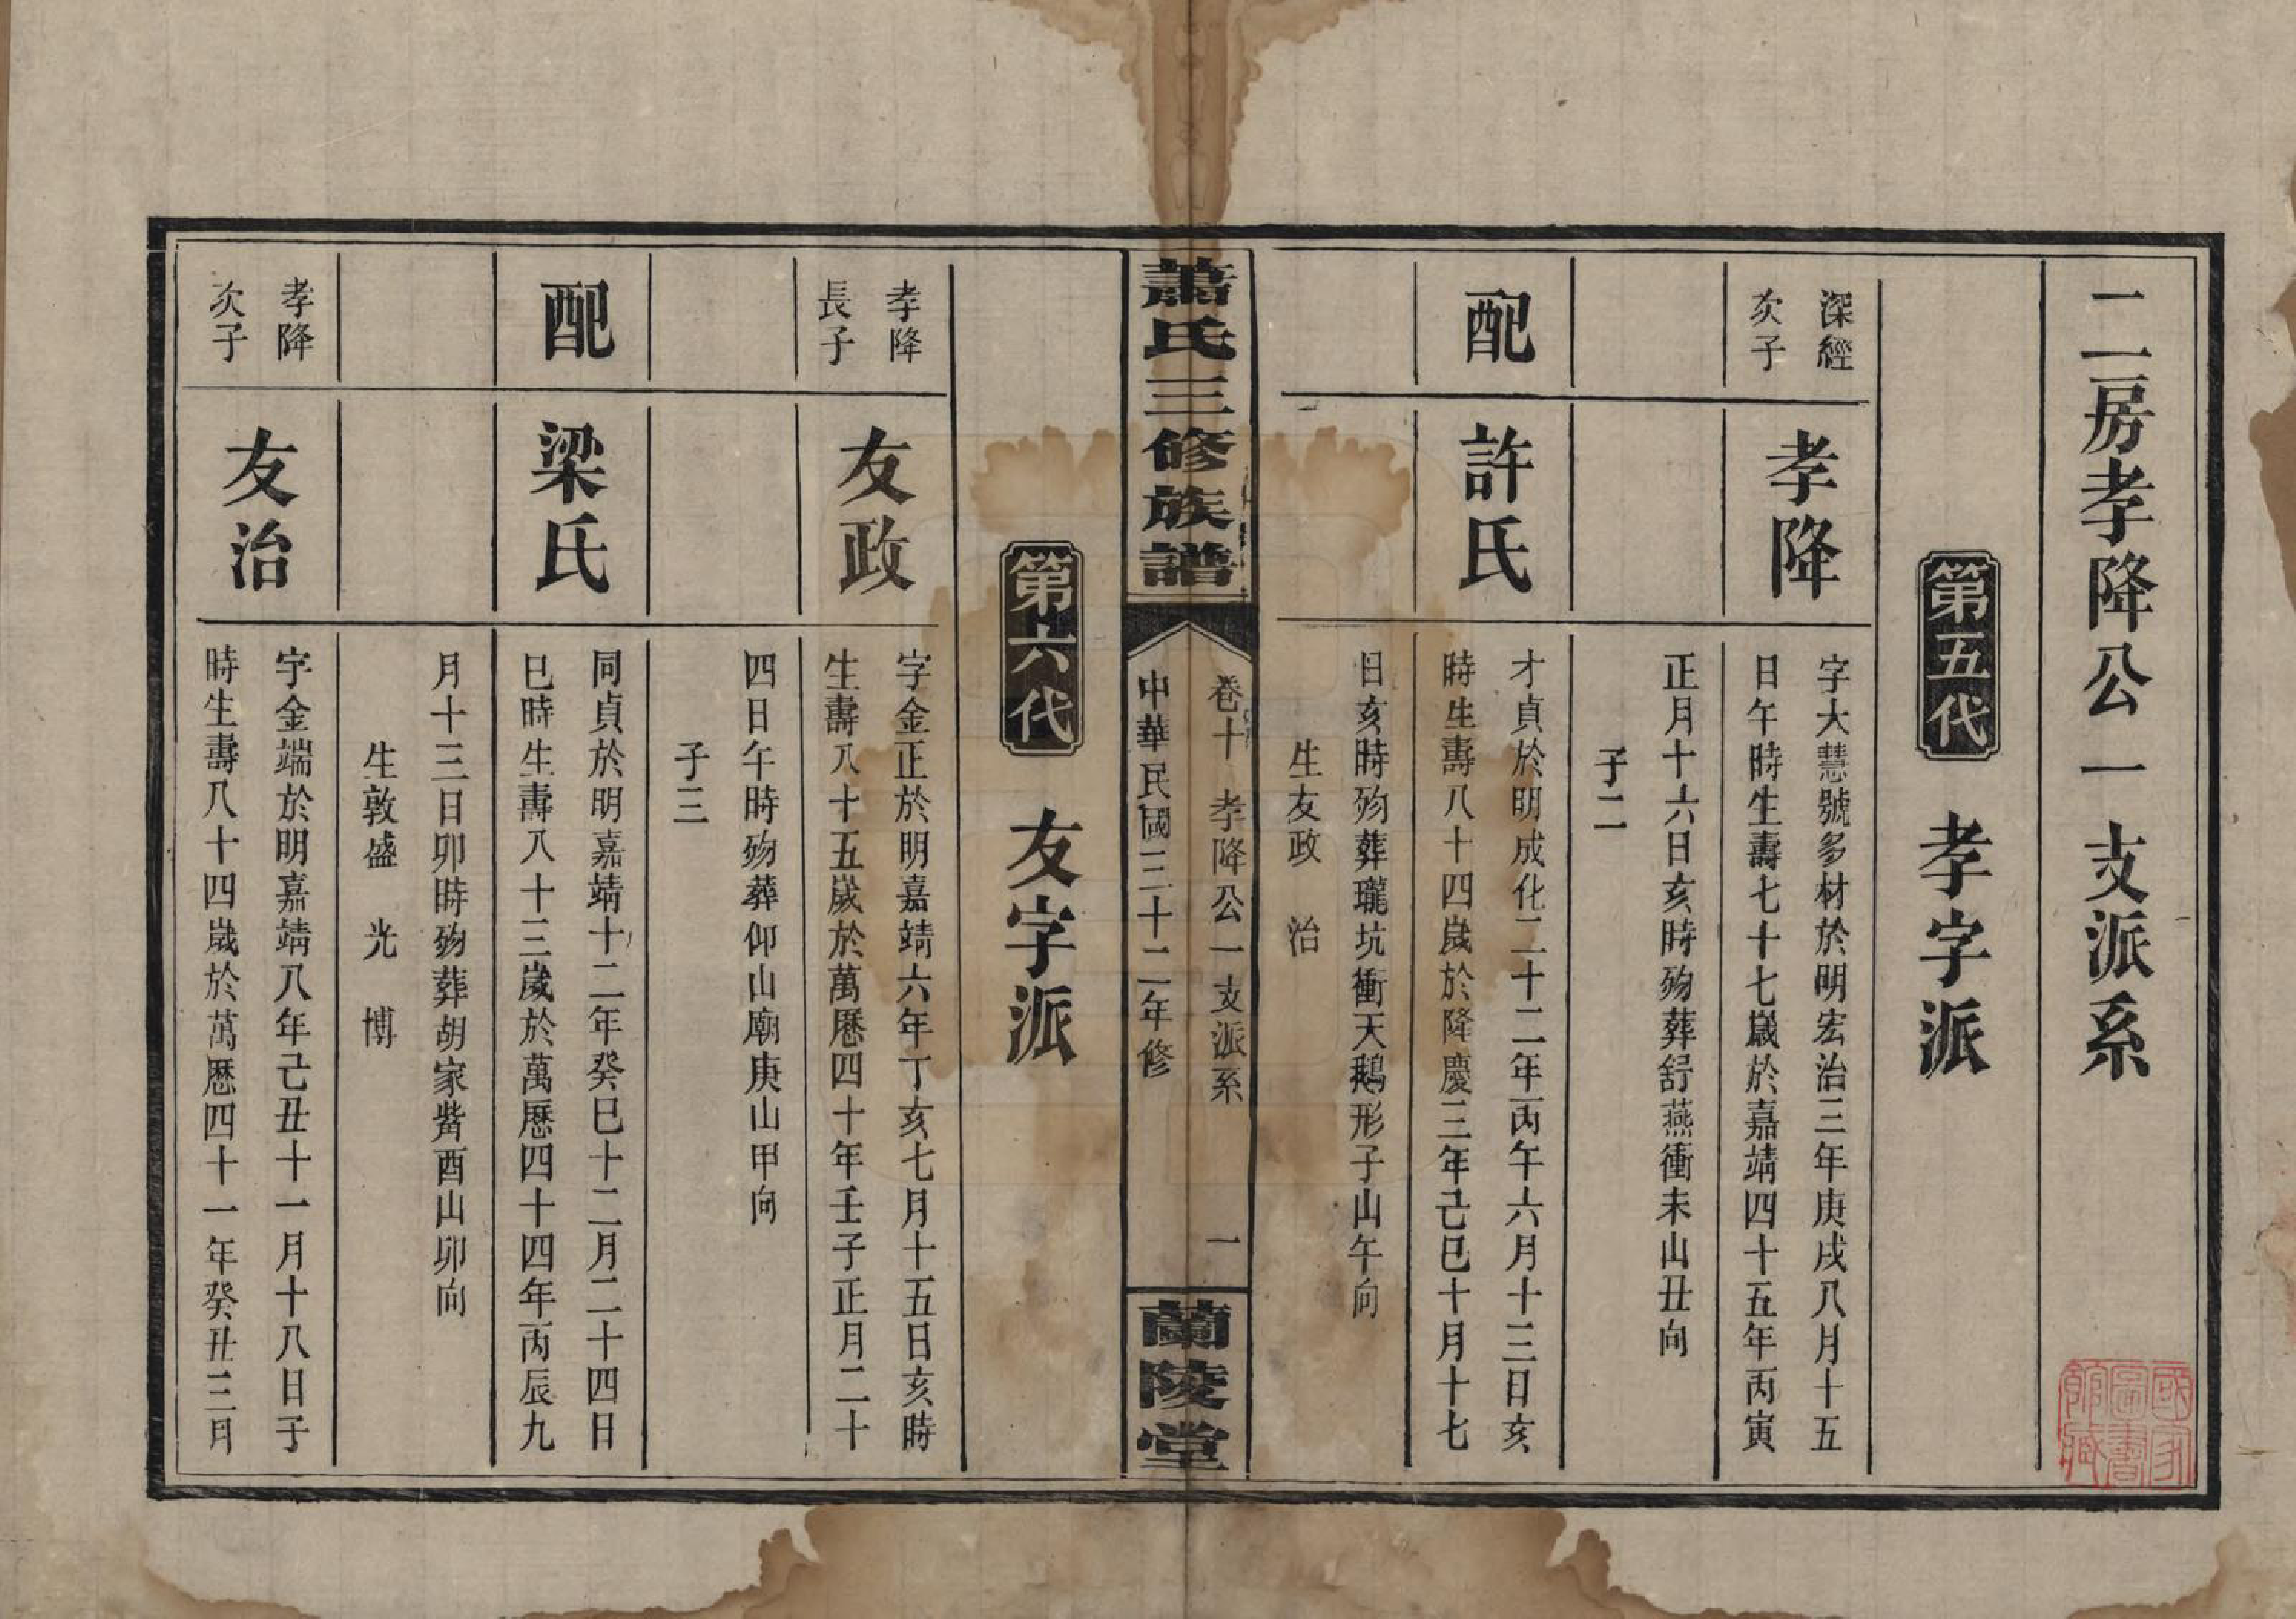 二房孝降公一支派系
第五代　孝字派
深經
次子
孝降
字大慧號多材於明宏治三年庚戌八月十五
日午時生壽七十七歲於嘉靖四十五年丙寅
正月十六日亥時歿葬舒燕衝未山丑向
子二
配
許氏
才貞於明成化二十二年丙午六月十三日亥
時生壽八十四歲於降慶三年己巳十月十七
日亥時歿葬瓏坑衝天鵝形子山午向
生友政　治
蕭氏三修族譜
卷十　孝降公一支派系　一
中華民國三十二年修
蘭陵堂
第六代　友字派
孝降
長子
友政
字金正於明嘉靖六年丁亥七月十五日亥時
生壽八十五歲於萬曆四十年壬子正月二十
四日午時歿葬仰山廟庚山甲向
子三
配
梁氏
同貞於明嘉靖十二年癸巳十二月二十四日
巳時生壽八十三歲於萬曆四十四年丙辰九
月十三日卯時歿葬胡家觜酉山卯向
生敦盛　光　博
孝降
次子
友治
字金端於明嘉靖八年己丑十一月十八日子
時生壽八十四歲於萬曆四十一年癸丑三月
國家圖書館藏